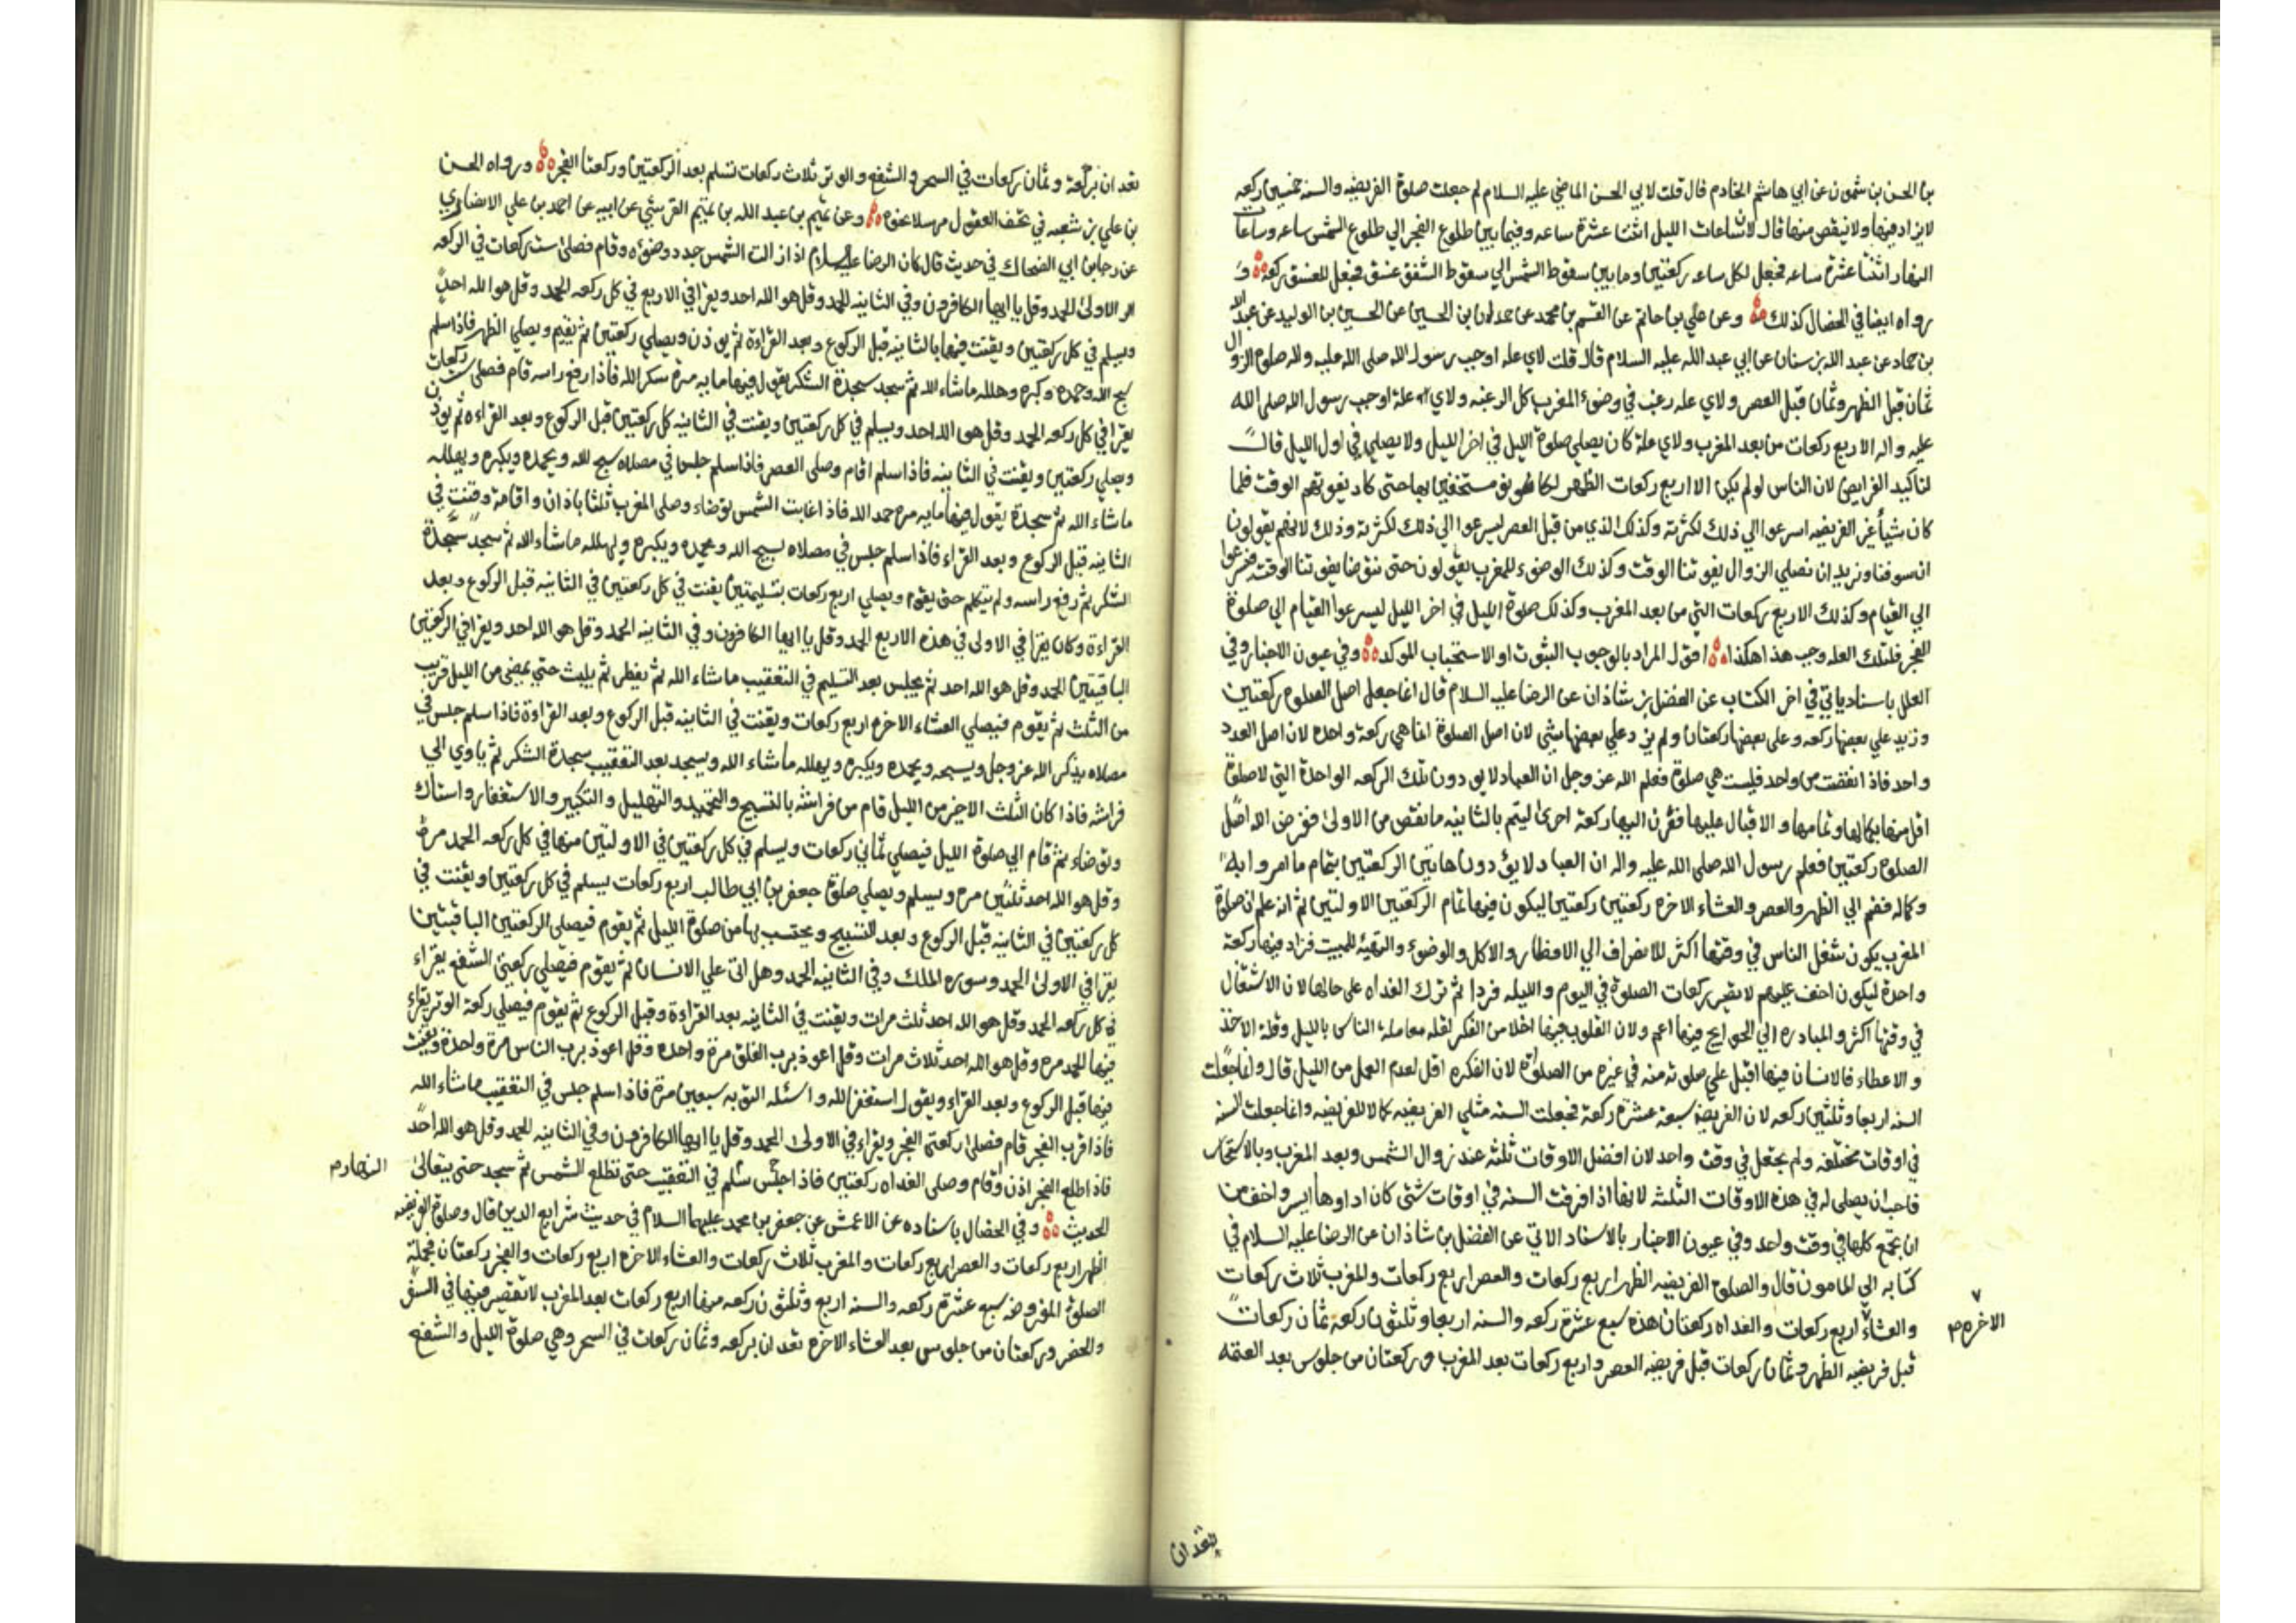 بن الحسن بن شمون عن ابي هاشم الخادم قال قلت لابي الحسن الماضي عليه السلام لم جعلت صلوة الفريضه والسنه خمسين ركعه
لايزاد فيها ولا ينقص منها قال لان ساعات الليل اثنتا عشرة ساعه وفيما بين طلوع الفجر الي طلوع الشمس ساعه وساعات
النهار اثنتا عشرة ساعه فجعل لكل ساعه ركعتين وما بين سقوط الشمس الي سقوط الشفق غسق فجعل للغسق ركعه و
رواه ايضا في الخصال كذلك وعن علي بن حاتم عن القسم بن محمد عن حمدان بن الحسين عن الحسين بن الوليد عن عبد الله
بن حماد عن عبد الله بن سنان عن ابي عبد الله عليه السلام قال قلت لاي عله اوجب رسول الله صلى الله عليه واله صلوة الزوال
ثمان قبل الظهر وثمان قبل العصر ولاي عله رغب في وضوء المغرب كل الرغبه ولاي علة اوجب رسول الله صلى الله
عليه واله الاربع ركعات من بعد المغرب ولاي علة كان يصلي صلوة الليل في اخر الليل ولا يصلي في اول الليل قال
لتاكيد الفرايض لان الناس لو لم يكن الا اربع ركعات الظهر لكانوا مستخفين بها حتى كاد يفوتهم الوقت فلما
كان شيأ غير الفريضه اسرعوا الي ذلك لكثرته وكذلك الذي من قبل العصر ليسرعوا الي ذلك لكثرته وذلك لانهم يقولون
ان سوفنا ونريد ان نصلي الزوال يفوتنا الوقت وكذلك الوضوء للمغرب يقولون حتى نتوضا يفوتنا الوقت فيسرعوا
الي القيام وكذلك الاربع ركعات التي من بعد المغرب وكذلك صلوة الليل في اخر الليل ليسرعوا القيام الي صلوة
الفجر فلتلك العله وجب هذا هكذا اقول المراد بالوجوب الثبوت او الاستحباب الموكد وفي عيون الاخبار وفي
العلل باسناد ياتي في اخر الكتاب عن الفضل بن شاذان عن الرضا عليه السلام قال انما جعل اصل الصلوة ركعتين
وزيد علي بعضها ركعه وعلى بعضها ركعتان ولم يزد علي بعضها شئ لان اصل الصلوة انما هي ركعة واحده لان اصل العدد
واحد فاذا نقصت من واحد فليست هي صلوة فعلم الله عز وجل ان العباد لا يودون تلك الركعه الواحدة التي لا صلوة
اقل منها بكمالها وتمامها والاقبال عليها فقرن اليها ركعة اخرى ليتم بالثانيه ما نقص من الاولى ففرض الله اصل
الصلوة ركعتين فعلم رسول الله صلى الله عليه واله ان العباد لا يؤدون هاتين الركعتين بتمام ما امروا به
وكماله فضم الي الظهر والعصر والعشاء الاخره ركعتين ركعتين ليكون فيها تمام الركعتين الاولتين ثم انه علم ان صلوة
المغرب يكون شغل الناس في وقتها اكثر للانصراف الي الافطار والاكل والوضوء والتهيئة للمبيت فزاد فيها ركعة
واحدة ليكون اخف عليهم لا تصير ركعات الصلوة في اليوم والليله فردا ثم ترك الغداه علي حالها لان الاشتغال
في وقتها اكثر والمبادره الي الحوايج فيها اعم ولان القلوب فيها اخلا من الفكر لقله معاملة الناس بالليل وقلة الاخذ
والاعطاء فالانسان فيها اقبل علي صلوته منه في غيره من الصلوة لان الفكره اقل لعدم العمل من الليل قال وانما جعلت
السنه اربعا وثلثين ركعه لان الفريضه سبعة عشرة ركعة فجعلت السنه مثلي الفريضه كمالا للفريضه وانما جعلت السنه
في اوقات مختلفه ولم يجعل في وقت واحد لان افضل الاوقات ثلثه عند زوال الشمس وبعد المغرب وبالاسحار
فاحب ان يصلى له في هذه الاوقات الثلثه لانها اذا فرقت السنه في اوقات شتى كان اداوها ايسر واخف من
ان تجمع كلها في وقت واحد وفي عيون الاخبار بالاسناد الاتي عن الفضل بن شاذان عن الرضا عليه السلام في
كتابه الي المامون قال والصلوة الفريضه الظهر اربع ركعات والعصر اربع ركعات والمغرب ثلاث ركعات
والعشاء اربع ركعات والغداه ركعتان هذه سبع عشرة ركعه والسنه اربع وثلثون ركعة ثمان ركعات
الاخره
قبل فريضه الظهر وثمان ركعات قبل فريضه العصر واربع ركعات بعد المغرب وركعتان من جلوس بعد العتمه
بقدان
تعدان بركعة وثمان ركعات في السحر والشفع والوتر ثلاث ركعات تسلم بعد الركعتين وركعتا الفجر ورواه الحسن
بن علي بن شعبه في تحف العقول مرسلا نحوه وعن تميم بن عبد الله بن تميم القرشي عن ابيه عن احمد بن علي الانصاري
عن رجا بن ابي الضحاك في حديث قال كان الرضا عليه السلام اذا زالت الشمس جدد وضوءه وقام فصلى ست ركعات في الركعه
الاولى الحمد وقل يا ايها الكافرون وفي الثانيه الحمد وقل هو الله احد ويقرا في الاربع في كل ركعه الحمد وقل هو الله احد
ويسلم في كل ركعتين ويقنت فيها بالثانيه قبل الركوع وبعد القراءة ثم يوذن ويصلي ركعتين ثم يقيم ويصلي الظهر فاذا سلم
سبح الله وحمده وكبره وهلله ماشاء الله ثم سجد سجدة الشكر يقول فيها مايه مرة شكرا لله فاذا رفع راسه قام فصلى ست ركعات
يقرا في كل ركعه الحمد وقل هو الله احد ويسلم في كل ركعتين ويقنت في الثانيه كل ركعتين قبل الركوع وبعد القراءه ثم يوذن
ويصلي ركعتين ويقنت في الثانيه فاذا سلم اقام وصلى العصر فاذا سلم جلس في مصلاه سبح الله ويحمده ويكبره ويهلله
ماشاء الله ثم سجدة يقول فيها مايه مرة حمد الله فاذا غابت الشمس توضاء وصلى المغرب ثلثا باذان واقامة وقنت في
الثانيه قبل الركوع وبعد القراء فاذا سلم جلس في مصلاه يسبح الله ويحمده ويكبره ويهلله ماشاء الله ثم سجد سجدة
الشكر ثم رفع راسه ولم يتكلم حتى يقوم ويصلي اربع ركعات بتسليمتين يقنت في كل ركعتين في الثانيه قبل الركوع وبعد
القراءة وكان يقرا في الاولى في هذه الاربع الحمد وقل يا ايها الكافرون وفي الثانيه الحمد وقل هو الله احد ويقرا في الركعتين
الباقيتين الحمد وقل هو الله احد ثم يجلس بعد التسليم في التعقيب ماشاء الله ثم يفطر ثم يلبث حتى يمضي من الليل قريب
من الثلث ثم يقوم فيصلي العشاء الاخره اربع ركعات ويقنت في الثانيه قبل الركوع وبعد القراءة فاذا سلم جلس في
مصلاه يذكر الله عز وجل ويسبحه ويحمده ويكبره ويهلله ماشاء الله ويسجد بعد التعقيب سجدة الشكر ثم ياوي الي
فراشه فاذا كان الثلث الاخير من الليل قام من فراشه بالتسبيح والتحميد والتهليل والتكبير والاستغفار واستاك
وتوضاء ثم قام الي صلوة الليل فيصلي ثماني ركعات ويسلم في كل ركعتين في الاولتين منها في كل ركعه الحمد مرة
وقل هو الله احد ثلثين مره ويسلم ويصلي صلوة جعفر بن ابي طالب اربع ركعات يسلم في كل ركعتين ويقنت في
كل ركعتين في الثانيه قبل الركوع وبعد التسبيح ويحتسب بها من صلوة الليل ثم يقوم فيصلى الركعتين الباقيتين
يقرا في الاولى الحمد وسوره الملك وفي الثانيه الحمد وهل اتى علي الانسان ثم يقوم فيصلي ركعتي الشفع يقراء
في كل ركعه الحمد وقل هو الله احد ثلث مرات ويقنت في الثانيه بعد القراءة وقبل الركوع ثم يقوم فيصلي ركعة الوتر يقراء
فيها الحمد مره وقل هو الله احد ثلاث مرات وقل اعوذ برب الفلق مرة واحده وقل اعوذ برب الناس مرة واحدة ويقنت
فيها قبل الركوع وبعد القراء ويقول استغفر الله واسئله التوبه سبعين مرة فاذا سلم جلس في التعقيب ماشاء الله
فاذا قرب الفجر قام فصلى ركعتي الفجر ويقراء في الاولى الحمد وقل يا ايها الكافرون وفي الثانيه الحمد وقل هو الله احد
فاذا طلع الفجر اذن واقام وصلى الغداه ركعتين فاذا سلم جلس في التعقيب حتى تطلع الشمس ثم سجد حتى يتعالى
النهار
الحديث وفي الخصال باسناده عن الاعمش عن جعفر بن محمد عليهما السلام في حديث شرايع الدين قال وصلوة الفريضه
الظهر اربع ركعات والعصر اربع ركعات والمغرب ثلاث ركعات والعشاء الاخره اربع ركعات والفجر ركعتان فجملة
الصلوة المفروضه سبع عشرة ركعه والسنه اربع وثلثون ركعه منها اربع ركعات بعد المغرب لا تقصير فيها في السفر
والحضر وركعتان من جلوس بعد العشاء الاخره تعدان بركعه وثمان ركعات في السحر وهي صلوة الليل والشفع